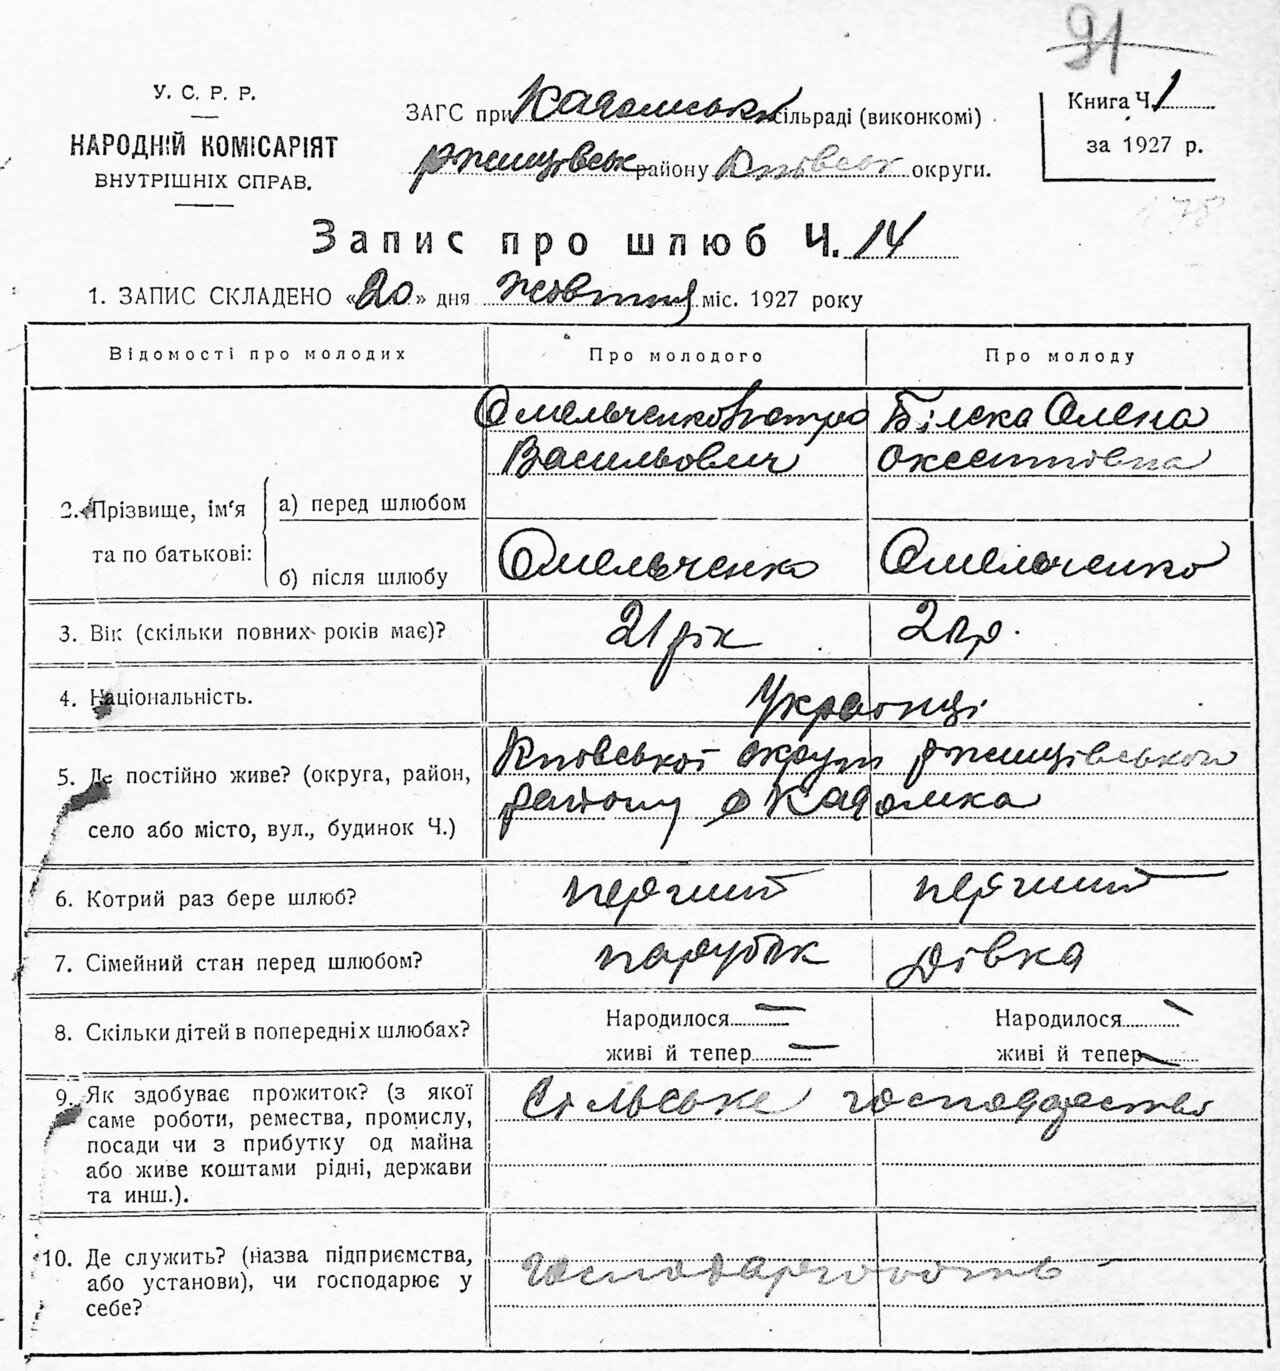 91
У. С. Р. Р.
НАРОДНІЙ КОМІСАРІЯТ
ВНУТРІШНІХ СПРАВ.
ЗАГС при Кадомськ сільраді (виконкомі)
Ржищівськ району Київськ округи.
Книга Ч. 1
за 1927 р.
178
Запис про шлюб Ч. 14
1. ЗАПИС СКЛАДЕНО «20» дня Жовтня міс. 1927 року
Відомості про молодих Про молодого Про молоду
2. Прізвище, ім'я та по батькові:
а) перед шлюбом
Омельченко Петро Васильович
Білека Олена
б) після шлюбу
Омельченко Омельченко
3. Вік (скільки повних років має)? 21 рік 21 р.
4. Національність. Українці
5. Де постійно живе? (округа, район,
село або місто, вул., будинок Ч.)
Київської округи Ржищівського
району с Кадомка
6. Котрий раз бере шлюб? перший перший
7. Сімейний стан перед шлюбом? парубок дівка
8. Скільки дітей в попередніх шлюбах?
Народилося — Народилося —
живі й тепер — живі й тепер —
9. Як здобуває прожиток? (з якої
саме роботи, ремества, промислу,
посади чи з прибутку од майна
або живе коштами рідні, держави
та инш.).
Сільське господарство
10. Де служить? (назва підприємства,
або установи), чи господарює у
себе?